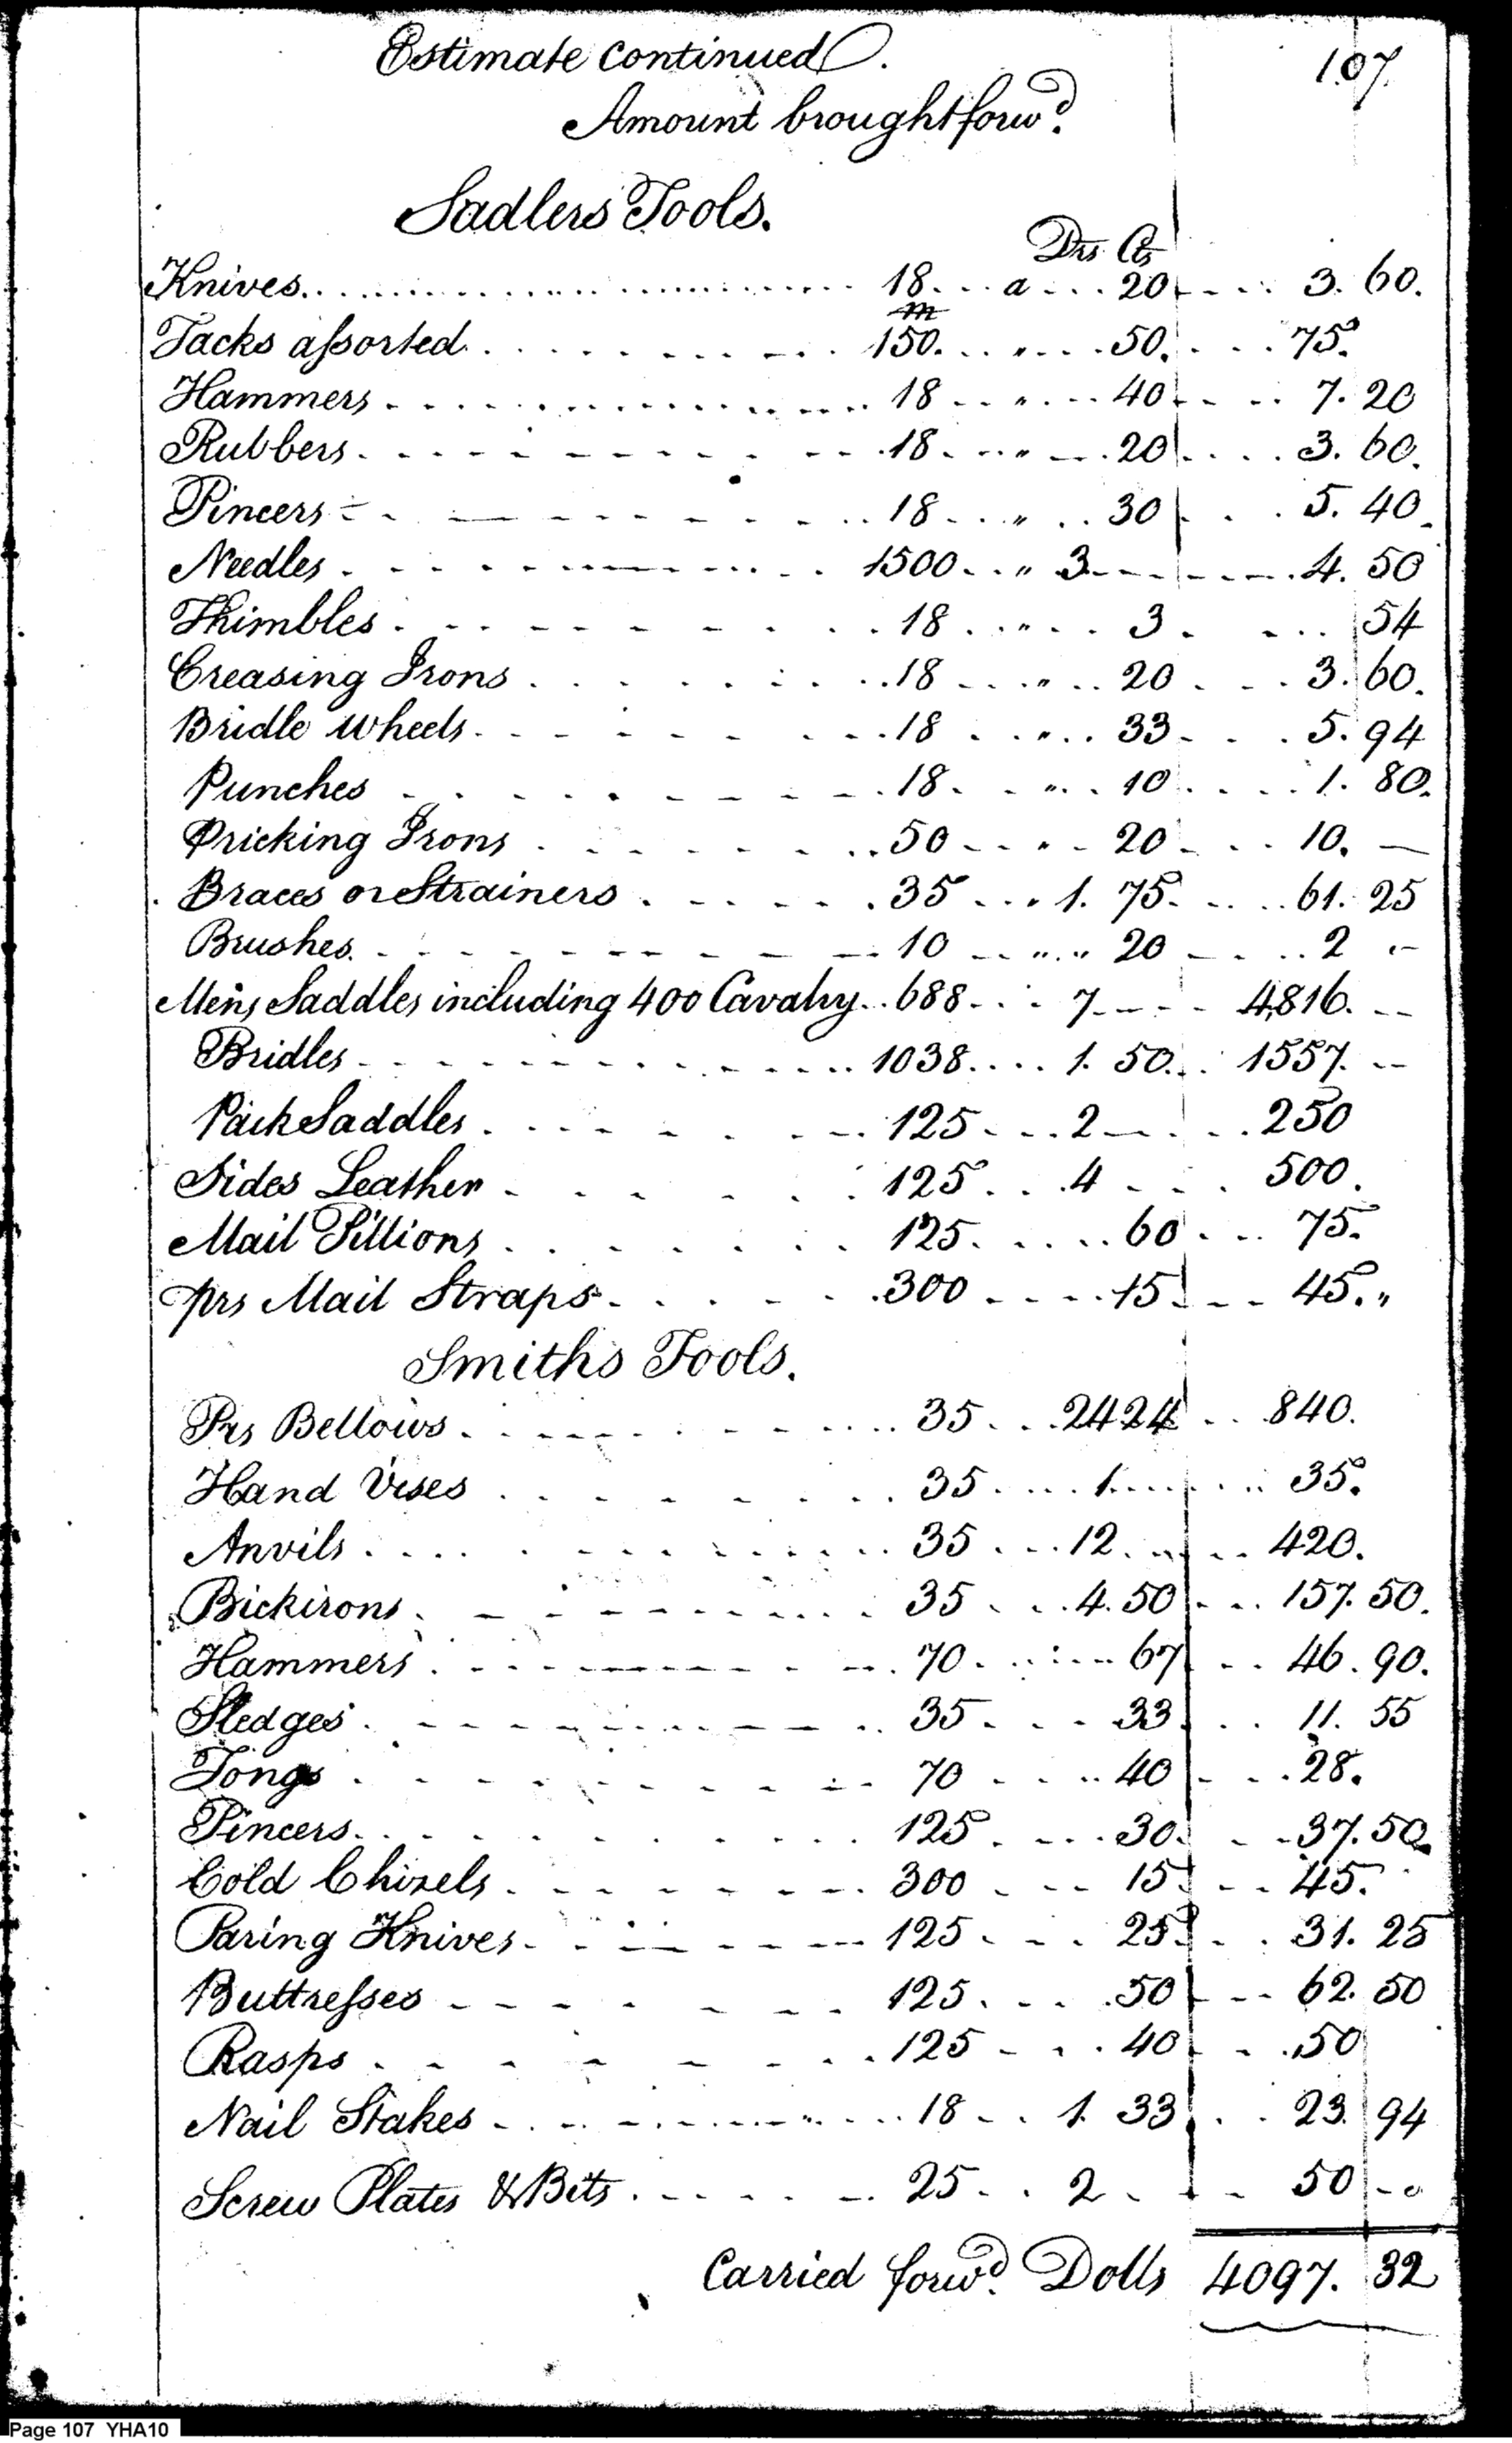 Estimate continued. 107.
Amount brought forwd.
Sadlers Tools.
Drs Cts
Knives 18 a 20 3. 60.
m
Tacks assorted 150. " 50. 75.
Hammers 18 " 40 7. 20
Rubbers 18 " 20 3. 60.
Pincers 18 " 30 5. 40
Needles 1500 " 3 4. 50
Thimbles 18 " 3 54
Creasing Irons 18 " 20 3. 60.
Bridle wheels 18 " 33 5. 94
Punches 18 " 10 1. 80.
Pricking Irons 50 " 20 10. —
Braces or Strainers 35 " 1. 75 61. 25
Brushes. 10 " " 20 2 -
Mens Saddles including 400 Cavalry 688 7 4816. --
Bridles 1038 1. 50 1557. --
Pack Saddles 125 2 250
Sides Leather 125 4 500.
Mail Pillions 125 60 75.
prs Mail Straps 300 15 45. "
Smiths Tools.
Prs Bellows 35 24 24 840.
Hand Vises 35 1 35.
Anvils 35 12 420.
Bickirons 35 4. 50 157. 50.
Hammers 70 67 46. 90.
Sledges 35 33 11. 55
Tongs 70 40 28.
Pincers 125 30 37. 50.
Cold Chizels 300 15 45.
Paring Knives 125 25 31. 25
Buttresses 125 50 62. 50
Rasps 125 40 50
Nail Stakes 18 1. 33 23. 94
Screw Plates & Bits 25 2 50 --
Carried forwd. Dolls 4097. 32
Page 107 YHA10